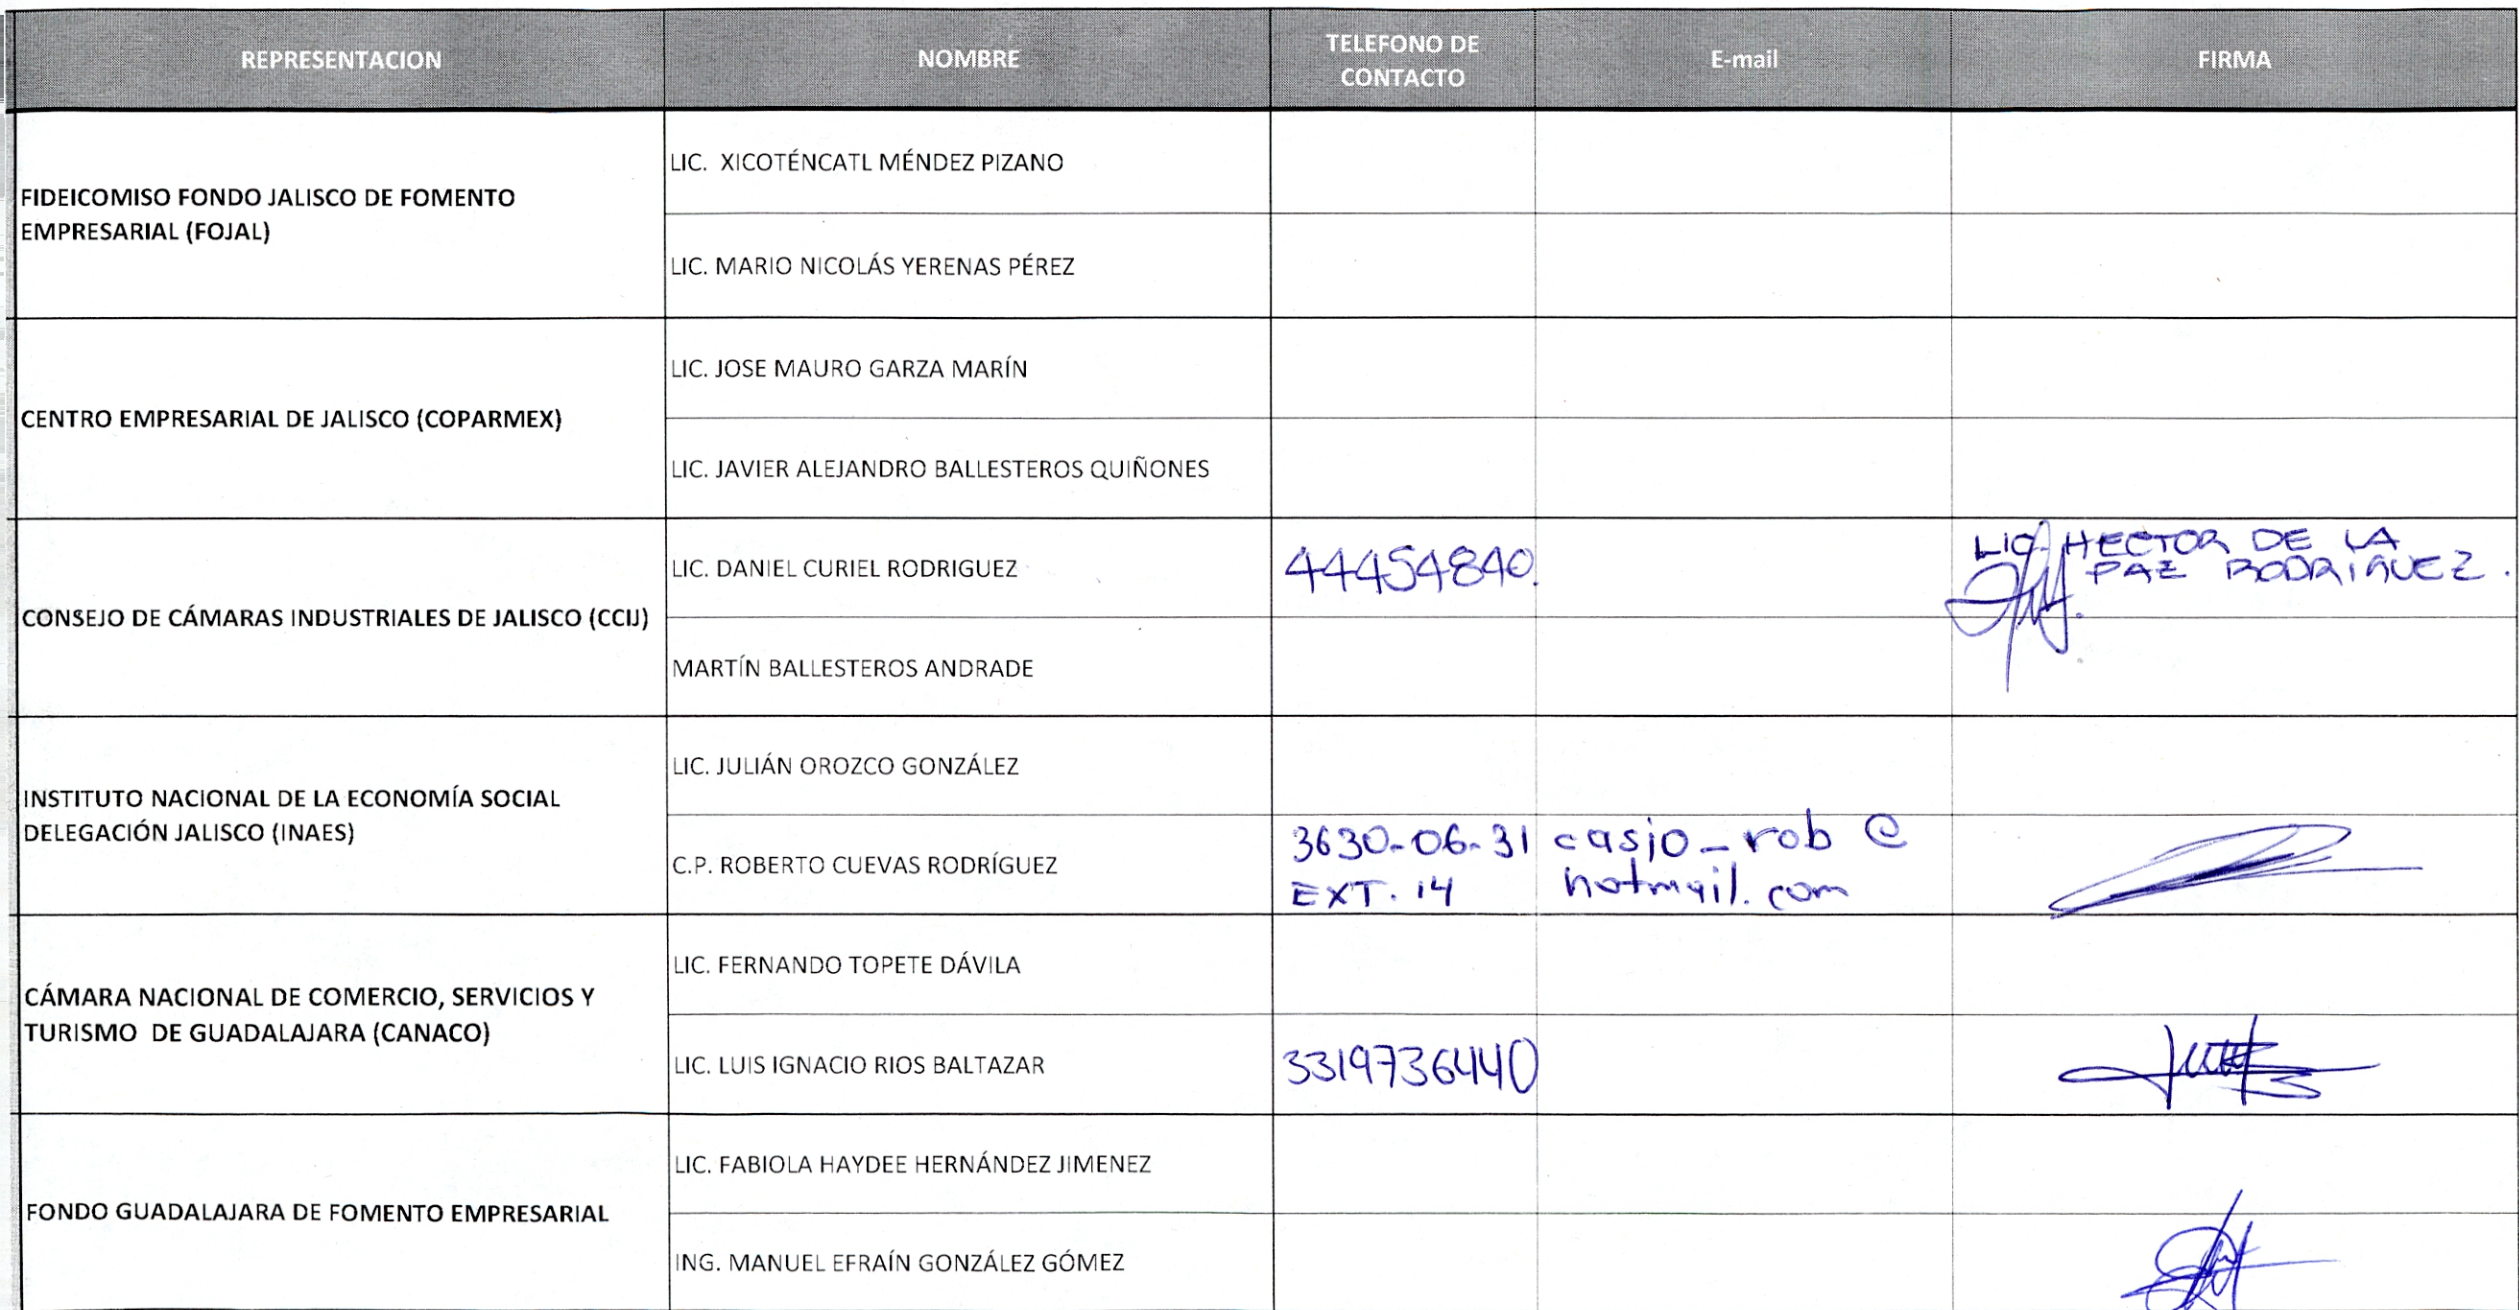 REPRESENTACION
NOMBRE
TELEFONO DE
CONTACTO
E-mail
FIRMA
FIDEICOMISO FONDO JALISCO DE FOMENTO
EMPRESARIAL (FOJAL)
LIC. XICOTÉNCATL MÉNDEZ PIZANO
LIC. MARIO NICOLÁS YERENAS PÉREZ
CENTRO EMPRESARIAL DE JALISCO (COPARMEX)
LIC. JOSE MAURO GARZA MARÍN
LIC. JAVIER ALEJANDRO BALLESTEROS QUIÑONES
CONSEJO DE CÁMARAS INDUSTRIALES DE JALISCO (CCIJ)
LIC. DANIEL CURIEL RODRIGUEZ
44454840.
LIC. HECTOR DE LA
PAZ RODRIGUEZ.
MARTÍN BALLESTEROS ANDRADE
INSTITUTO NACIONAL DE LA ECONOMÍA SOCIAL
DELEGACIÓN JALISCO (INAES)
LIC. JULIÁN OROZCO GONZÁLEZ
C.P. ROBERTO CUEVAS RODRÍGUEZ
3630-06-31
EXT. 14
casjo_rob @
hotmail.com
CÁMARA NACIONAL DE COMERCIO, SERVICIOS Y
TURISMO DE GUADALAJARA (CANACO)
LIC. FERNANDO TOPETE DÁVILA
LIC. LUIS IGNACIO RIOS BALTAZAR
3319736440
FONDO GUADALAJARA DE FOMENTO EMPRESARIAL
LIC. FABIOLA HAYDEE HERNÁNDEZ JIMENEZ
ING. MANUEL EFRAÍN GONZÁLEZ GÓMEZ